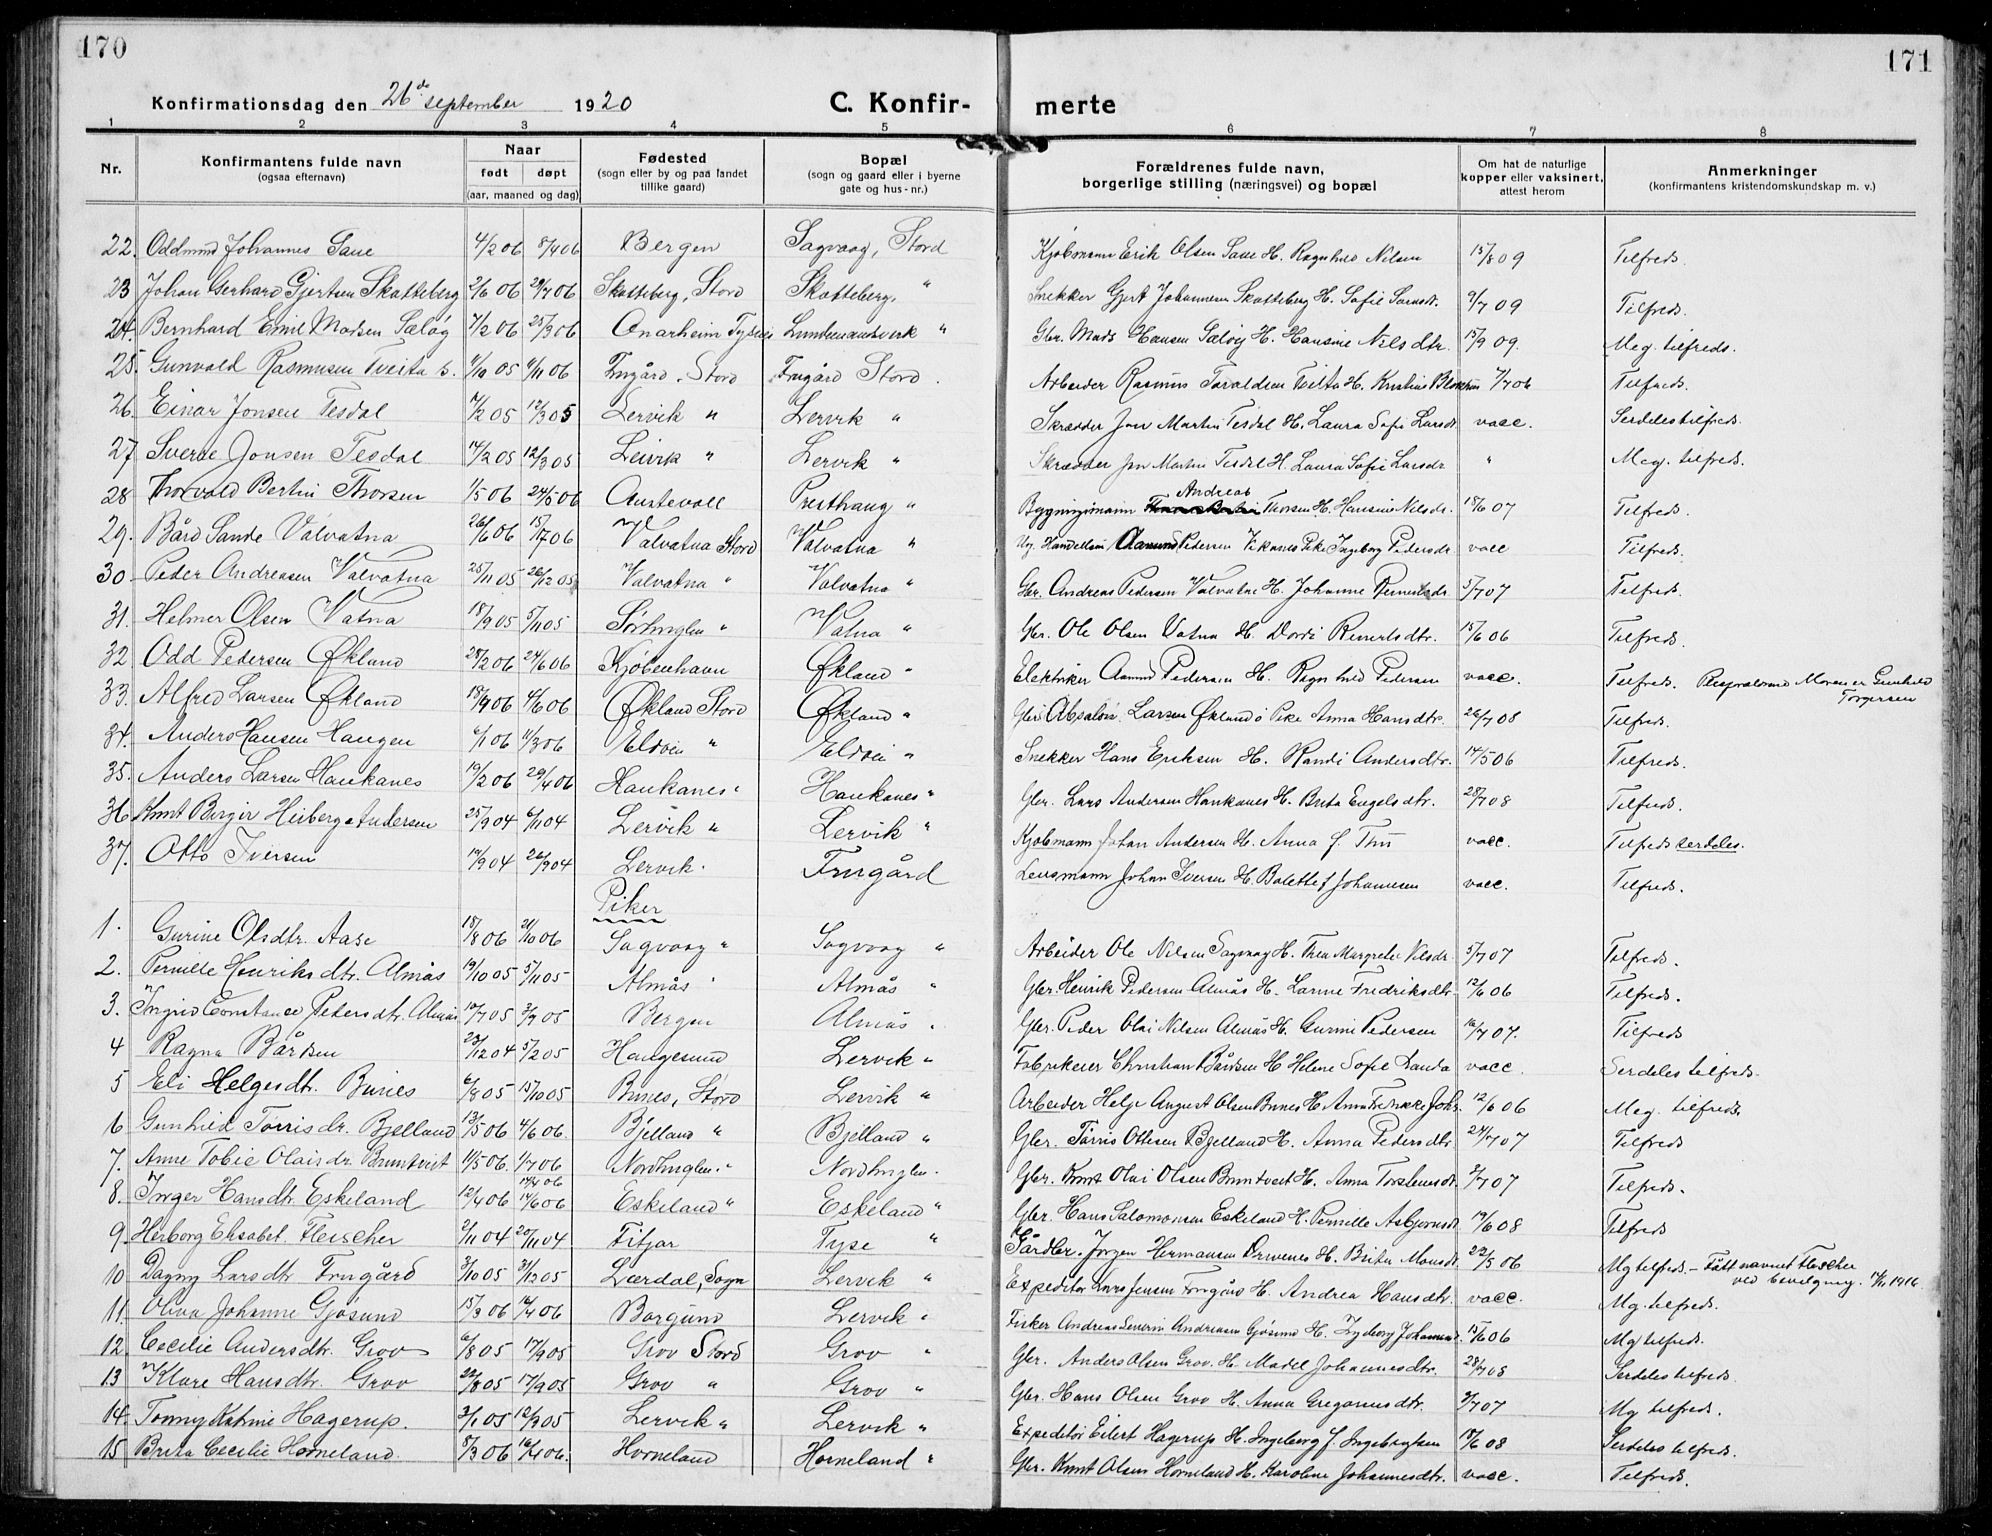 170
171
Konfirmationsdag den 26de september 1920
C. Konfir- merte
1 2 3 4 5 6 7 8
Nr.
Konfirmantens fulde navn
(ogsaa efternavn)
Naar
født døpt
(aar, maaned og dag)
Fødested
(sogn eller by og paa landet
tillike gaard)
Bopæl
(sogn og gaard eller i byerne
gate og hus-nr.)
Forældrenes fulde navn,
borgerlige stilling (næringsvei) og bopæl
Om hat de naturlige
kopper eller vaksinert,
attest herom
Anmerkninger
(konfirmantens kristendomskundskap m. v.)
22. Oddmund Johannes Saue 4/2 06 8/4 06 Bergen Sagvaag, Stord Kjøbmann Erik Olsen Saue H. Ragnhild Nilsen 15/8 09 Tilfreds.
23 Johan Gerhard Gjertsen Skatteberg 2/6 06 29/7 06 Skatteberg, Stord Skatteberg, " Snekker Gjert Johannesen Skatteberg H. Sofie Larsdt. 9/7 09 Tilfreds.
24. Bernhard Emil Madsen Sæløy 7/2 06 25/3 06 Onarheim Tysnes " Gbr. Mads Hansen Sæløy H. Hansine Nilsdtr. 15/9 09. Meg. tilfreds.
25. Gunvald Rasmusen Tveita s. 9/10 05 06 Frugård, Stord Frugård Stord. Arbeider Rasmus Taraldsen Tveita H. Kristine 7/7 06 Tilfreds.
26. Einar Jonsen Tesdal 7/2 05 12/3 05 Lervik " Lervik " Skrædder Jon Martin Tesdal H. Laura Sofie Larsdt vacc. Serdeles tilfreds.
27 Sverre Jonsen Tesdal 14/2 05 12/3 05 Leivik " Lervik " Skrædder Jon Martin Tesdal H. Laura Sofie Larsdr " Meg. tilfreds.
28 Thorvald Bertin Thorsen 1/5 06 24/5 06 Austevoll Presthaug " Bygningsmann Andreas Thorsen H. Hansine Nilsdr. 18/6 07 Tilfreds.
29. Bård Sande Valvatna 26/6 06 15/7 06 Valvatna Stord Valvatna " Ug. Aamund Pedersen Vikanes Pike Ingeborg Pedersdr vacc Tilfreds.
30. Peder Andreasen Valvatna 25/11 05 26/12 05 Valvatna " Valvatna " Gbr. Andreas Pedersen Valvatne H. Johanne 5/7 07 Tilfreds.
31. Helmer Olsen Vatna 18/9 05 5/11 05 Sørhuglen " Vatna " Gbr. Ole Olsen Vatna H. Dordi Reinertsdtr. 15/6 06 Tilfreds.
32 Odd Pedersen Økland 28/2 06 24/6 06 Kjøbenhavn Økland " Elektriker Aamund Pedersen H. Ragnhild Pedersen vacc. Tilfreds. Moren er Gunhild Torgersen
33. Alfred Larsen Økland 18/4 06 4/6 06 Økland Stord Økland " Absalon Larsen Økland o Pike Anna Hansdtr. 26/7 08 Tilfreds.
34. Anders Hansen Haugen 6/1 06 11/3 06 Eldøi " Eldøi " Snekker Hans Eriksen H. Randi Andersdtr. 14/5 06 Tilfreds.
35. Anders Larsen Haukanes 19/2 06 29/4 06 Haukanes " Haukanes " Gbr. Lars Andersen Haukanes H. Brita Engelsdtr. 28/7 08 Tilfreds.
36 Knut Birger Heiberg Andersen 25/9 04 6/11 04 Lervik " Lervik " Kjøbmann Johan Andersen H. Anna f. Thu vacc. Tilfreds serdeles.
37. Otto Iversen 19/9 04 26/9 04 Lervik. Frugård Lensmann Johan Iversen H. Bolette f Johannesen vacc. Tilfreds.
Piker
1. Gurine Olsdtr. Aase 18/8 06 21/10 06 Sagvaag " Sagvaag " Arbeider Ole Nilsen Sagvaag H. Thea Margrete Nilsdr. 5/7 07 Tilfreds.
2. Pernille Henriksdtr. Almås 19/10 05 5/11 05 Almås " Almås " Gbr. Henrik Pedersen Almås H. Larine Fredriksdtr 12/6 06 Tilfreds.
3. Ingrid Constance Pedersdtr. Almås 10/7 05 3/9 05 Bergen Almås " Gbr. Peder Olai Nilsen Almås H. Gurine Pedersen 16/7 07. Tilfreds
4 Ragna Bårdsen 23/12 04 5/2 05 Haugesund Lervik " Fabrikeier Christian Bårdsen H Helene Sofie Sanda vacc. Serdeles tilfreds.
5 Eli Helgesdtr. Bunes 6/8 05 15/10 05 Bunes, Stord Lervik " Arbeider Helge August Olsen Bunes H Anna Fredrikke Johs. 12/6 06 Meg. tilfreds.
6 Gunhild Torrisdr. Bjelland 13/5 06 4/6 06. Bjelland " Bjelland " Gbr. Tørris Ottesen Bjelland H. Anna Pedersdtr. 24/7 07 Tilfreds
7. Anne Tobie Olaisdr. Bruntveit 11/5 06. 1/7 06 Nordhuglen. " Nordhuglen. Gbr. Knut Olai Olsen Bruntveit H. Anna Torstensdt. 3/7 07 Tilfreds.
8. Inger Hansdtr. Eskeland 12/4 06 14/6 06 Eskeland " Eskeland " Gbr. Hans Salomonsen Eskeland H. Pernille Asbjørnsdt. 19/6 08 Tilfreds
9. Herborg Elisabet. Fleischer 2/11 04 20/11 04 Fitjar Tyse " Gårdbr. Jørgen Hermansen H. Brita Monsdt. 22/5 06 Mg tilfreds. - Fått navnet Fleischer ved bevilgning. 1916
10 Dagny Larsdtr Frugård 3/10 05 31/12 05 Lærdal, Sogn Lervik " Expeditør Lars Jensen Frugård H. Andrea Hansdtr. vacc. Mg. tilfreds.
11. Oliva Johanne Gjøsund 15/3 06 16/4 06 Borgund Lervik " Fisker Andreas Severin Andreasen Gjøsund H. 15/6 06 Mg tilfreds.
12. Cecilie Andersdtr. Grov 6/8 05 17/9 05 Grov Stord Grov " Gbr. Anders Olsen Grov. H. Madel Johannesdtr. 28/7 08 Serdeles tilfreds.
13 Klare Hansdtr. Grov 22/8 05 17/9 05 Grov " Grov " Gbr. Hans Olsen Grov H. Anna Gregoriusdtr. 3/7 07 Mg tilfreds.
14. Tonny Katrine Hagerup. 3/1 05 12/3 05 Lervik " Lervik " Expeditør Eilert Hagerup H. Ingeborg f. Ingebrigtsen 18/6 08 Serdeles tilfreds.
15 Brita Cecilie Horneland. 8/3 06 16/4 06. Horneland Horneland " Gbr. Knut Olsen Horneland H. Karoline Johannesdtr. vacc. Tilfreds.